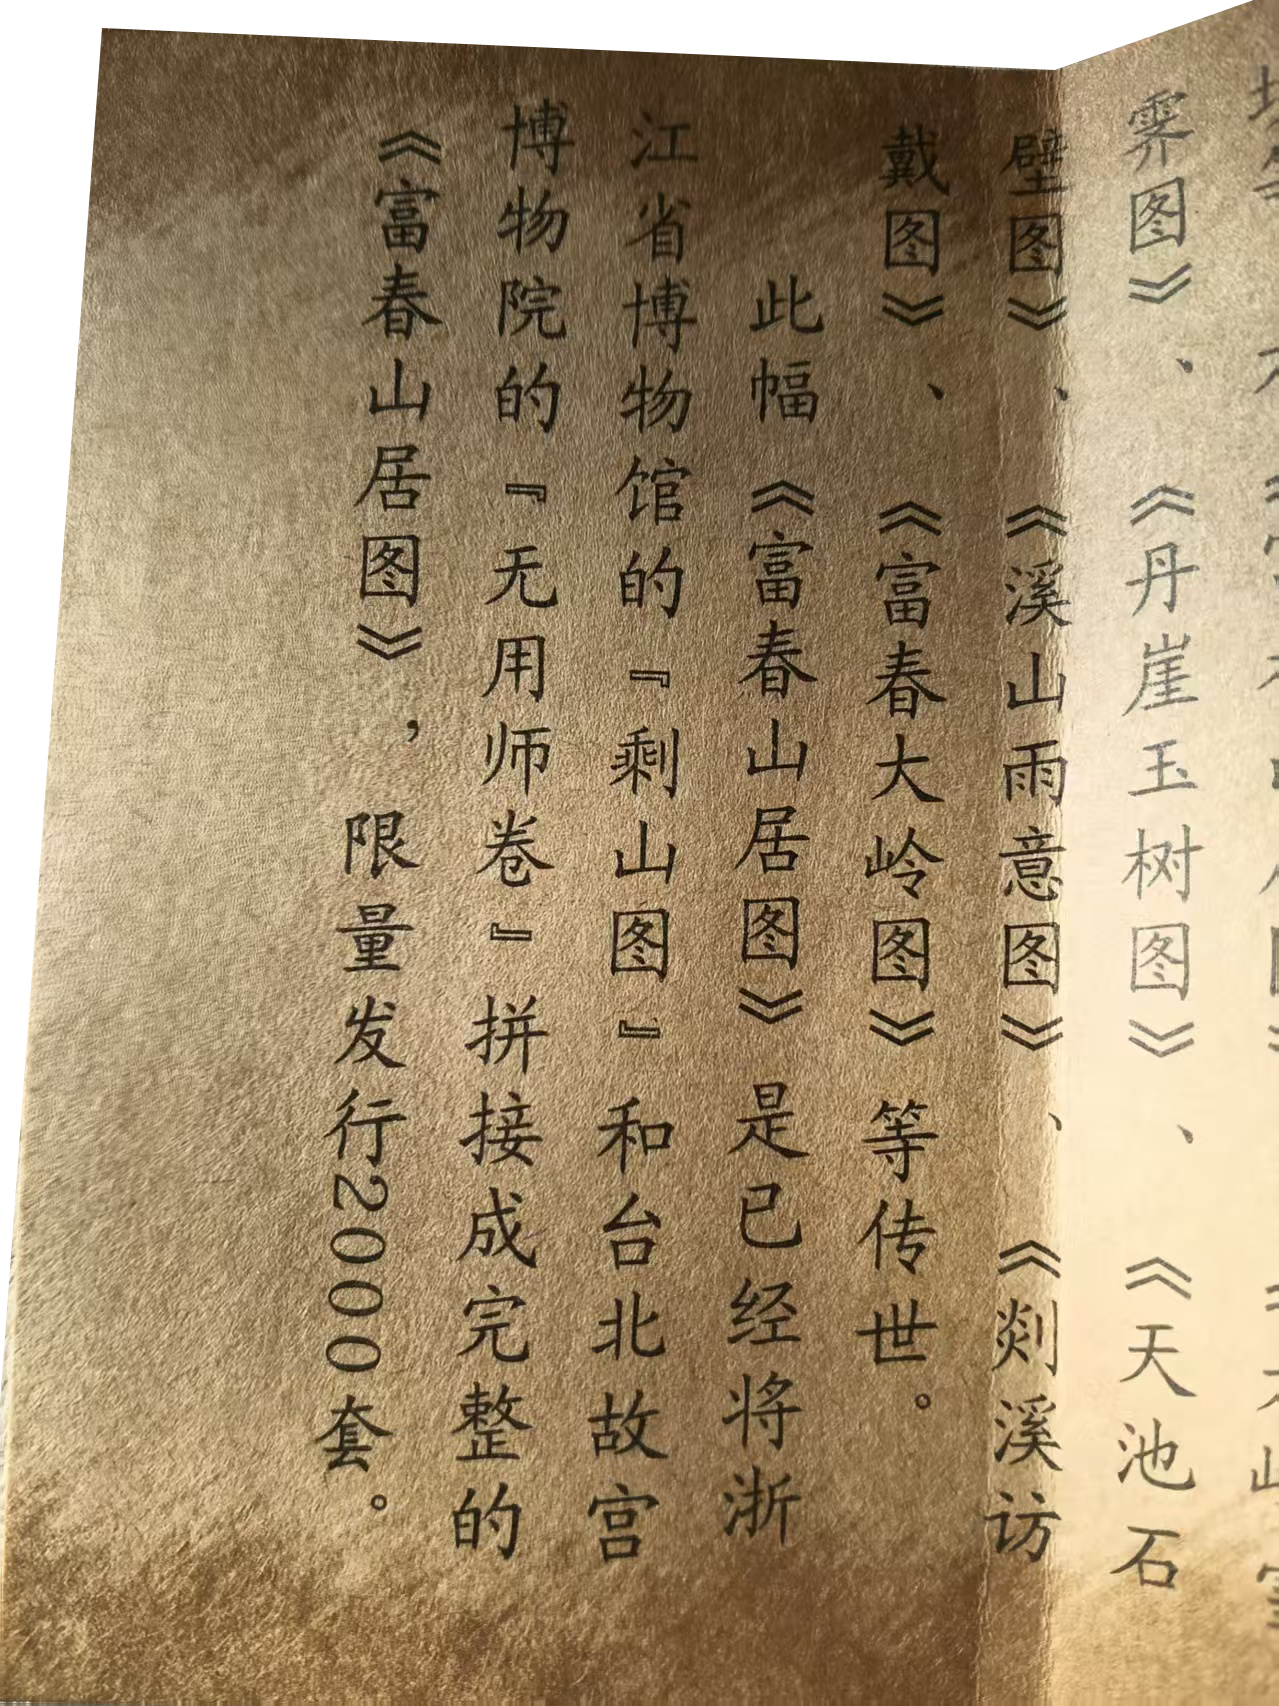 霁图》、《丹崖玉树图》、《天池石
壁图》、《溪山雨意图》、《剡溪访
戴图》、《富春大岭图》等传世。
此幅《富春山居图》是已经将浙
江省博物馆的『剩山图』和台北故宫
博物院的『无用师卷』拼接成完整的
《富春山居图》，限量发行2000套。